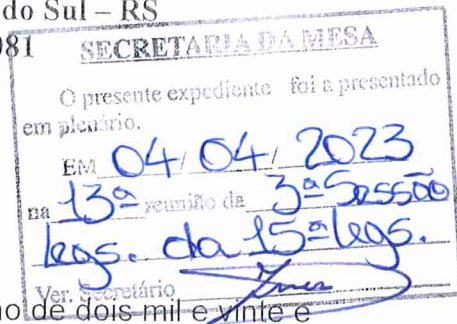 do Sul – RS
081
SECRETARIA DA MESA
O presente expediente foi apresentado
em plenário.
EM 04/ 04/ 2023
na 13ª reunião da 3ª Sessão
legs. da 15ª legs.
Ver. Secretário
no de dois mil e vinte e